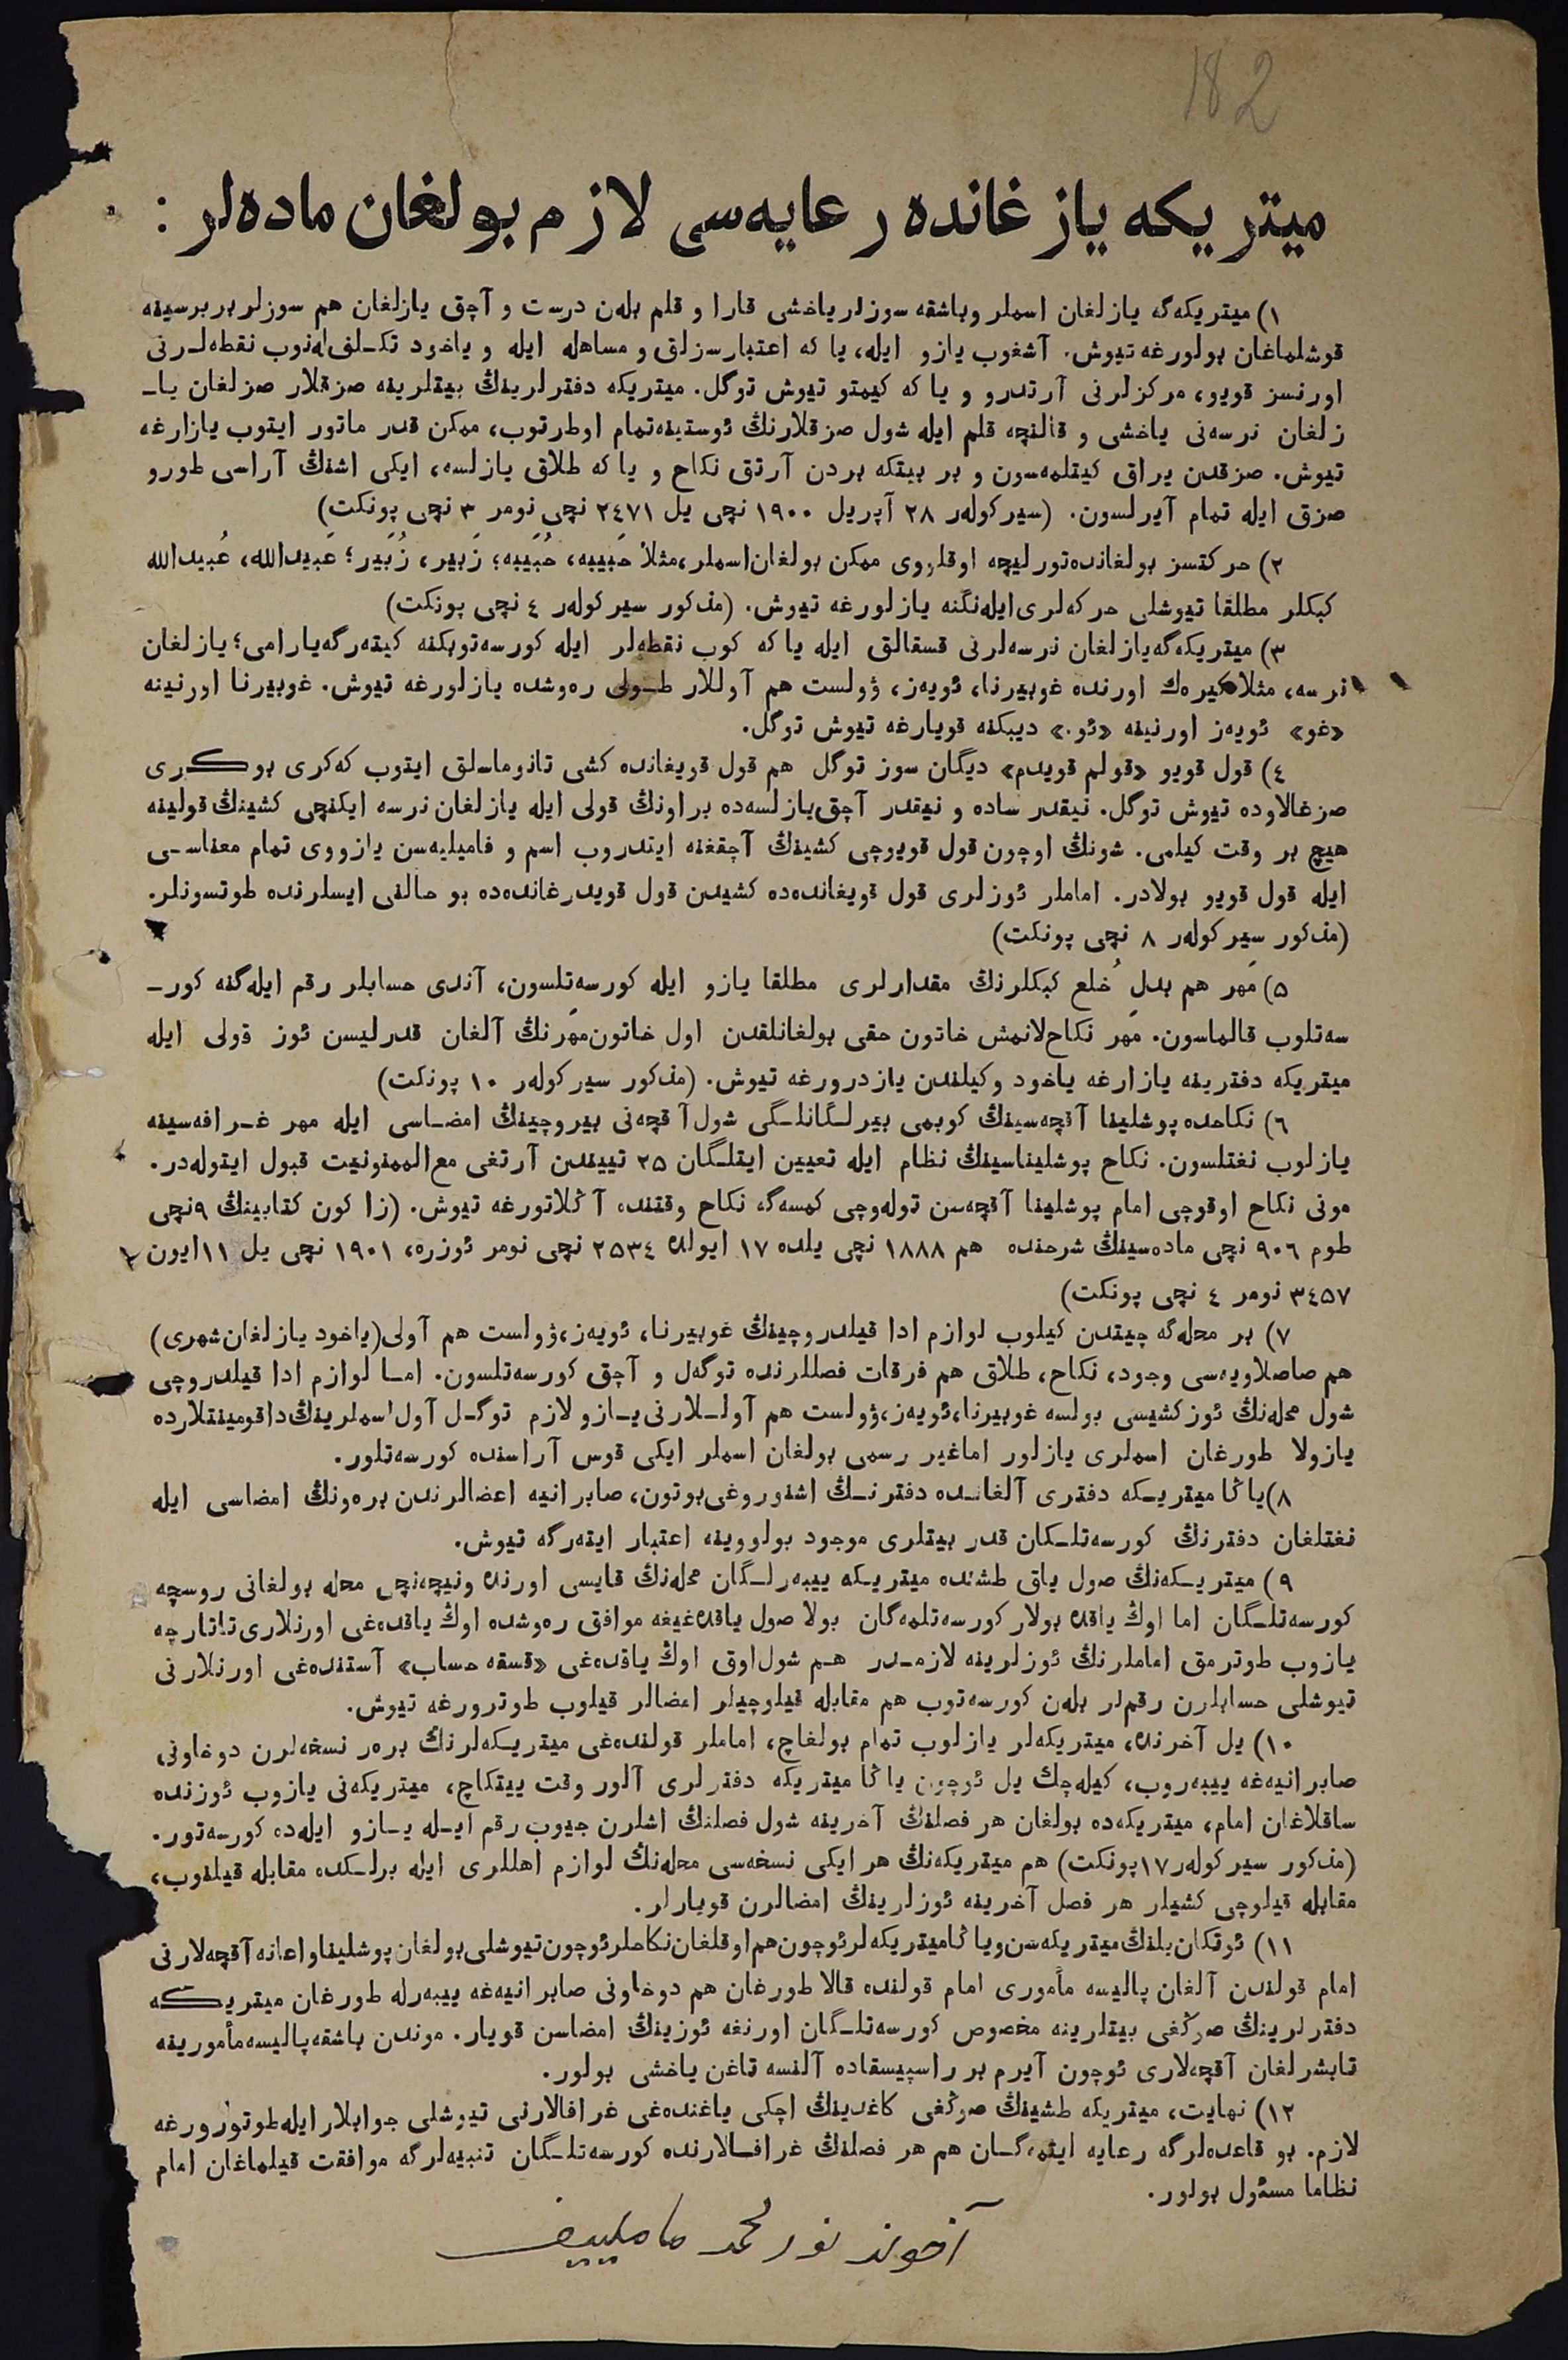 182
ميتريكه يازغانده رعايه‌سى لازم بولغان ماده‌لر :
١) ميتريكه‌گه يازلغان اسملر وباشقه سوزلر ياخشى قارا و قلم بله‌ن درست و آچق يازلغان هم سوزلر بر برسينه
قوشلماغان بولورغه تيوش. آشغوب يازو ايله، يا كه اعتبارسزلق و مساهله ايله و ياخود تكـلف‌له‌نوب نقطه‌لـرنى
اورنسز قويو، مركزلرنى آرتدرو و يا كه كيمتو تيوش توگل. ميتريكه دفترلرينڭ بيتلرينه صزقلار صزلغان يا‌ـ
زلغان نرسه‌نى ياخشى و قالنچه قلم ايله شول صزقلارنڭ ئوستينه‌تمام اوطرتوب، ممكن قدر ماتور ايتوب يازارغه
تيوش. صزقدن يراق كيتلمه‌سون و بر بيتكه بردن آرتق نكاح و يا كه طلاق يازلسه، ايكى اشنڭ آراسى طورو
صزق ايله تمام آيرلسون. (سيركوله‌ر ٢٨ آپريل ١٩٠٠ نچى يل ٢٤٧١ نچى نومر ٣ نچى پونكت)
٢) حركتسز بولغانده‌تورليچه اوقلووى ممكن بولغان‌اسملر،مثلاً حَبيبه، حُبَيبه؛ زَبير، زُبَير؛ عَبيدالله، عُبيدالله
كبكلر مطلقا تيوشلى حركه‌لرى‌ايله‌نگنه يازلورغه تيوش. (مذكور سيركوله‌ر ٤ نچى پونكت)
٣) ميتريكه‌گه‌يازلغان نرسه‌لرنى قسقالق ايله يا كه كوب نقطه‌لر ايله كورسه‌توبكنه كيته‌رگه‌يارامى؛ يازلغان
نرسه، مثلا كيره‌ك اورنده غوبيرنا، ئويه‌ز، ۋولست هم آوللار طـولى ره‌وشده يازلورغه تيوش. غوبيرنا اورنينه
«غو» ئويه‌ز اورنينه «ئو.» ديبكنه قويارغه تيوش توگل.
٤) قول قويو «قولم قويدم» ديگان سوز توگل هم قول قويغانده كشى تانوماسلق ايتوب كه‌كرى بوكـرى
صزغالاوده تيوش توگل. نيقدر ساده و نيقدر آچق‌يازلسه‌ده براونڭ قولى ايله يازلغان نرسه ايكنچى كشينڭ قولينه
هيچ بر وقت كيلمى. شونڭ اوچون قول قويوچى كشينڭ آچقغنه ايتدروب اسم و فاميليه‌سن يازووى تمام معناسـى
ايله قول قويو بولادر. اماملر ئوزلرى قول قويغانده‌ده كشيدن قول قويدرغانده‌ده بو حالنى ايسلرنده طوتسونلر.
(مذكور سيركوله‌ر ٨ نچى پونكت)
٥) مَهر هم بدلِ خُلع كبكلرنڭ مقدارلرى مطلقا يازو ايله كورسه‌تلسون، آندى حسابلر رقم ايله‌گنه كورـ
سه‌تلوب قالماسون. مَهر نكاح‌لانمش خاتون حقى بولغانلقدن اول خاتون‌مهرنڭ آلغان قدرليسن ئوز قولى ايله
ميتريكه دفترينه يازارغه ياخود وكيلندن يازدرورغه تيوش. (مذكور سيركوله‌ر ١٠ پونكت)
٦) نكاحده پوشلينا آقچه‌سينڭ كوبمى بيرلـگانلـگى شول آقچه‌نى بيروچينڭ امضـاسى ايله مهر غـرافه‌سينه
يازلوب نغتلسون. نكاح پوشليناسينڭ نظام ايله تعيين ايتلـگان ٢٥ تيبندن آرتغى مع‌الممنونيت قبول ايتوله‌در.
مونى نكاح اوقوچى امام پوشلينا آقچه‌سن توله‌وچى كمسه‌گه نكاح وقتنده آڭلاتورغه تيوش. (زاكون كتابينڭ ٩نچى
طوم ٩٠٦ نچى ماده‌سينڭ شرحنده هم ١٨٨٨ نچى يلده ١٧ ايولده ٢٥٣٤ نچى نومر ئوزره، ١٩٠١ نچى يل ١١ ايون
٣٤٥٧ نومر ٤ نچى پونكت)
٧) بر محله‌گه چيتدن كيلوب لوازم ادا قيلدروچينڭ غوبيرنا، ئويه‌ز،ۋولست هم آولى(ياخود يازلغان‌شهرى)
هم صاصلاويه‌سى وجود، نكاح، طلاق هم فرقات فصللرنده توگه‌ل و آچق كورسه‌تلسون. امـا لوازم ادا قيلدروچى
شول محله‌نڭ ئوز كشيسى بولسه غوبيرنا،ئويه‌ز،ۋولست هم آولـلارنى يـازو لازم توگـل آول اسملرينڭ داقومينتلارده
يازولا طورغان اسملرى يازلور اماغير رسمى بولغان اسملر ايكى قوس آراسنده كورسه‌تلور.
٨)ياڭا ميتريـكه دفترى آلغانـده دفترنـڭ اشنوروغى‌بوتون، صابرانيه اعضالرندن بره‌ونڭ امضاسى ايله
نغتلغان دفترنڭ كورسه‌تلـكان قدر بيتلرى موجود بولووينه اعتبار ايته‌رگه تيوش.
٩) ميتريـكه‌نڭ صول ياق طشنده ميتريـكه ييبه‌رلـگان محله‌نڭ قايسى اورنده ونيچه‌نچى محله بولغانى روسچه
كورسه‌تلـگان اما اوڭ ياقده بولار كورسه‌تلمه‌گان بولا صول ياقده‌غيغه موافق ره‌وشده اوڭ ياقده‌غى اورنلارى‌تاتارچه
يازوب طوترمق اماملرنڭ ئوزلرينه لازمـدر هـم شول‌اوق اوڭ ياقده‌غى «قسقه حساب» آستنده‌غى اورنلارنى
تيوشلى حسابلرن رقم‌لر بله‌ن كورسه‌توب هم مقابله قيلوچيلر امضالر قيلوب طوترورغه تيوش.
١٠) يل آخرنده، ميتريكه‌لر يازلوب تمام بولغاچ، اماملر قولنده‌غى ميتريـكه‌لرنڭ بره‌ر نسخه‌لرن دوخاونى
صابرانيه‌غه ييبه‌روب، كيله‌چك يل ئوچون ياڭا ميتريكه دفترلرى آلور وقت ييتكاچ، ميتريكه‌نى يازوب ئوزنده
ساقلاغان امام، ميتريكه‌ده بولغان هر فصلنڭ آخرينه شول فصلنڭ اشلرن جيوب رقم ايـله يـازو ايله‌ده كورسه‌تور.
(مذكور سيركوله‌ر ١٧پونكت) هم ميتريكه‌نڭ هر ايكى نسخه‌سى محله‌نڭ لوازم اهللرى ايله برلـكده مقابله قيلنوب،
مقابله قيلوچى كشيلر هر فصل آخرينه ئوزلرينڭ امضالرن قويارلر.
١١) ئوتكان‌يلنڭ ميتريكه‌سن‌وياڭاميتريكه‌لرئوچون‌هم‌اوقلغان‌نكاحلرئوچون‌تيوشلى‌بولغان‌پوشليناواعانه‌آقچه‌لارنى
امام قولندن آلغان پاليسه مأمورى امام قولنده قالا طورغان هم دوخاونى صابرانيه‌غه ييبه‌رله طورغان ميتريـكه
دفترلرينڭ صوڭغى بيتلرينه مخصوص كورسه‌تلـگان اورنغه ئوزينڭ امضاسن قويار. موندن باشقه‌پاليسه‌مأمورينه
تابشرلغان آقچه‌لارى ئوچون آيرم بر راسپيسقاده آلنسه تاغن ياخشى بولور.
١٢) نهايت، ميتريكه طشينڭ صوڭغى كاغدينڭ اچكى ياغنده‌غى غرافالارنى تيوشلى جوابلار ايله‌طوتورورغه
لازم. بو قاعده‌لرگه رعايه ايتمه‌گـان هم هر فصلنڭ غرافـالارنده كورسه‌تلـگان تنبيه‌لرگه موافقت قيلماغان امام
نظاما مسئول بولور.
آخوند نورمحمد مامليييف